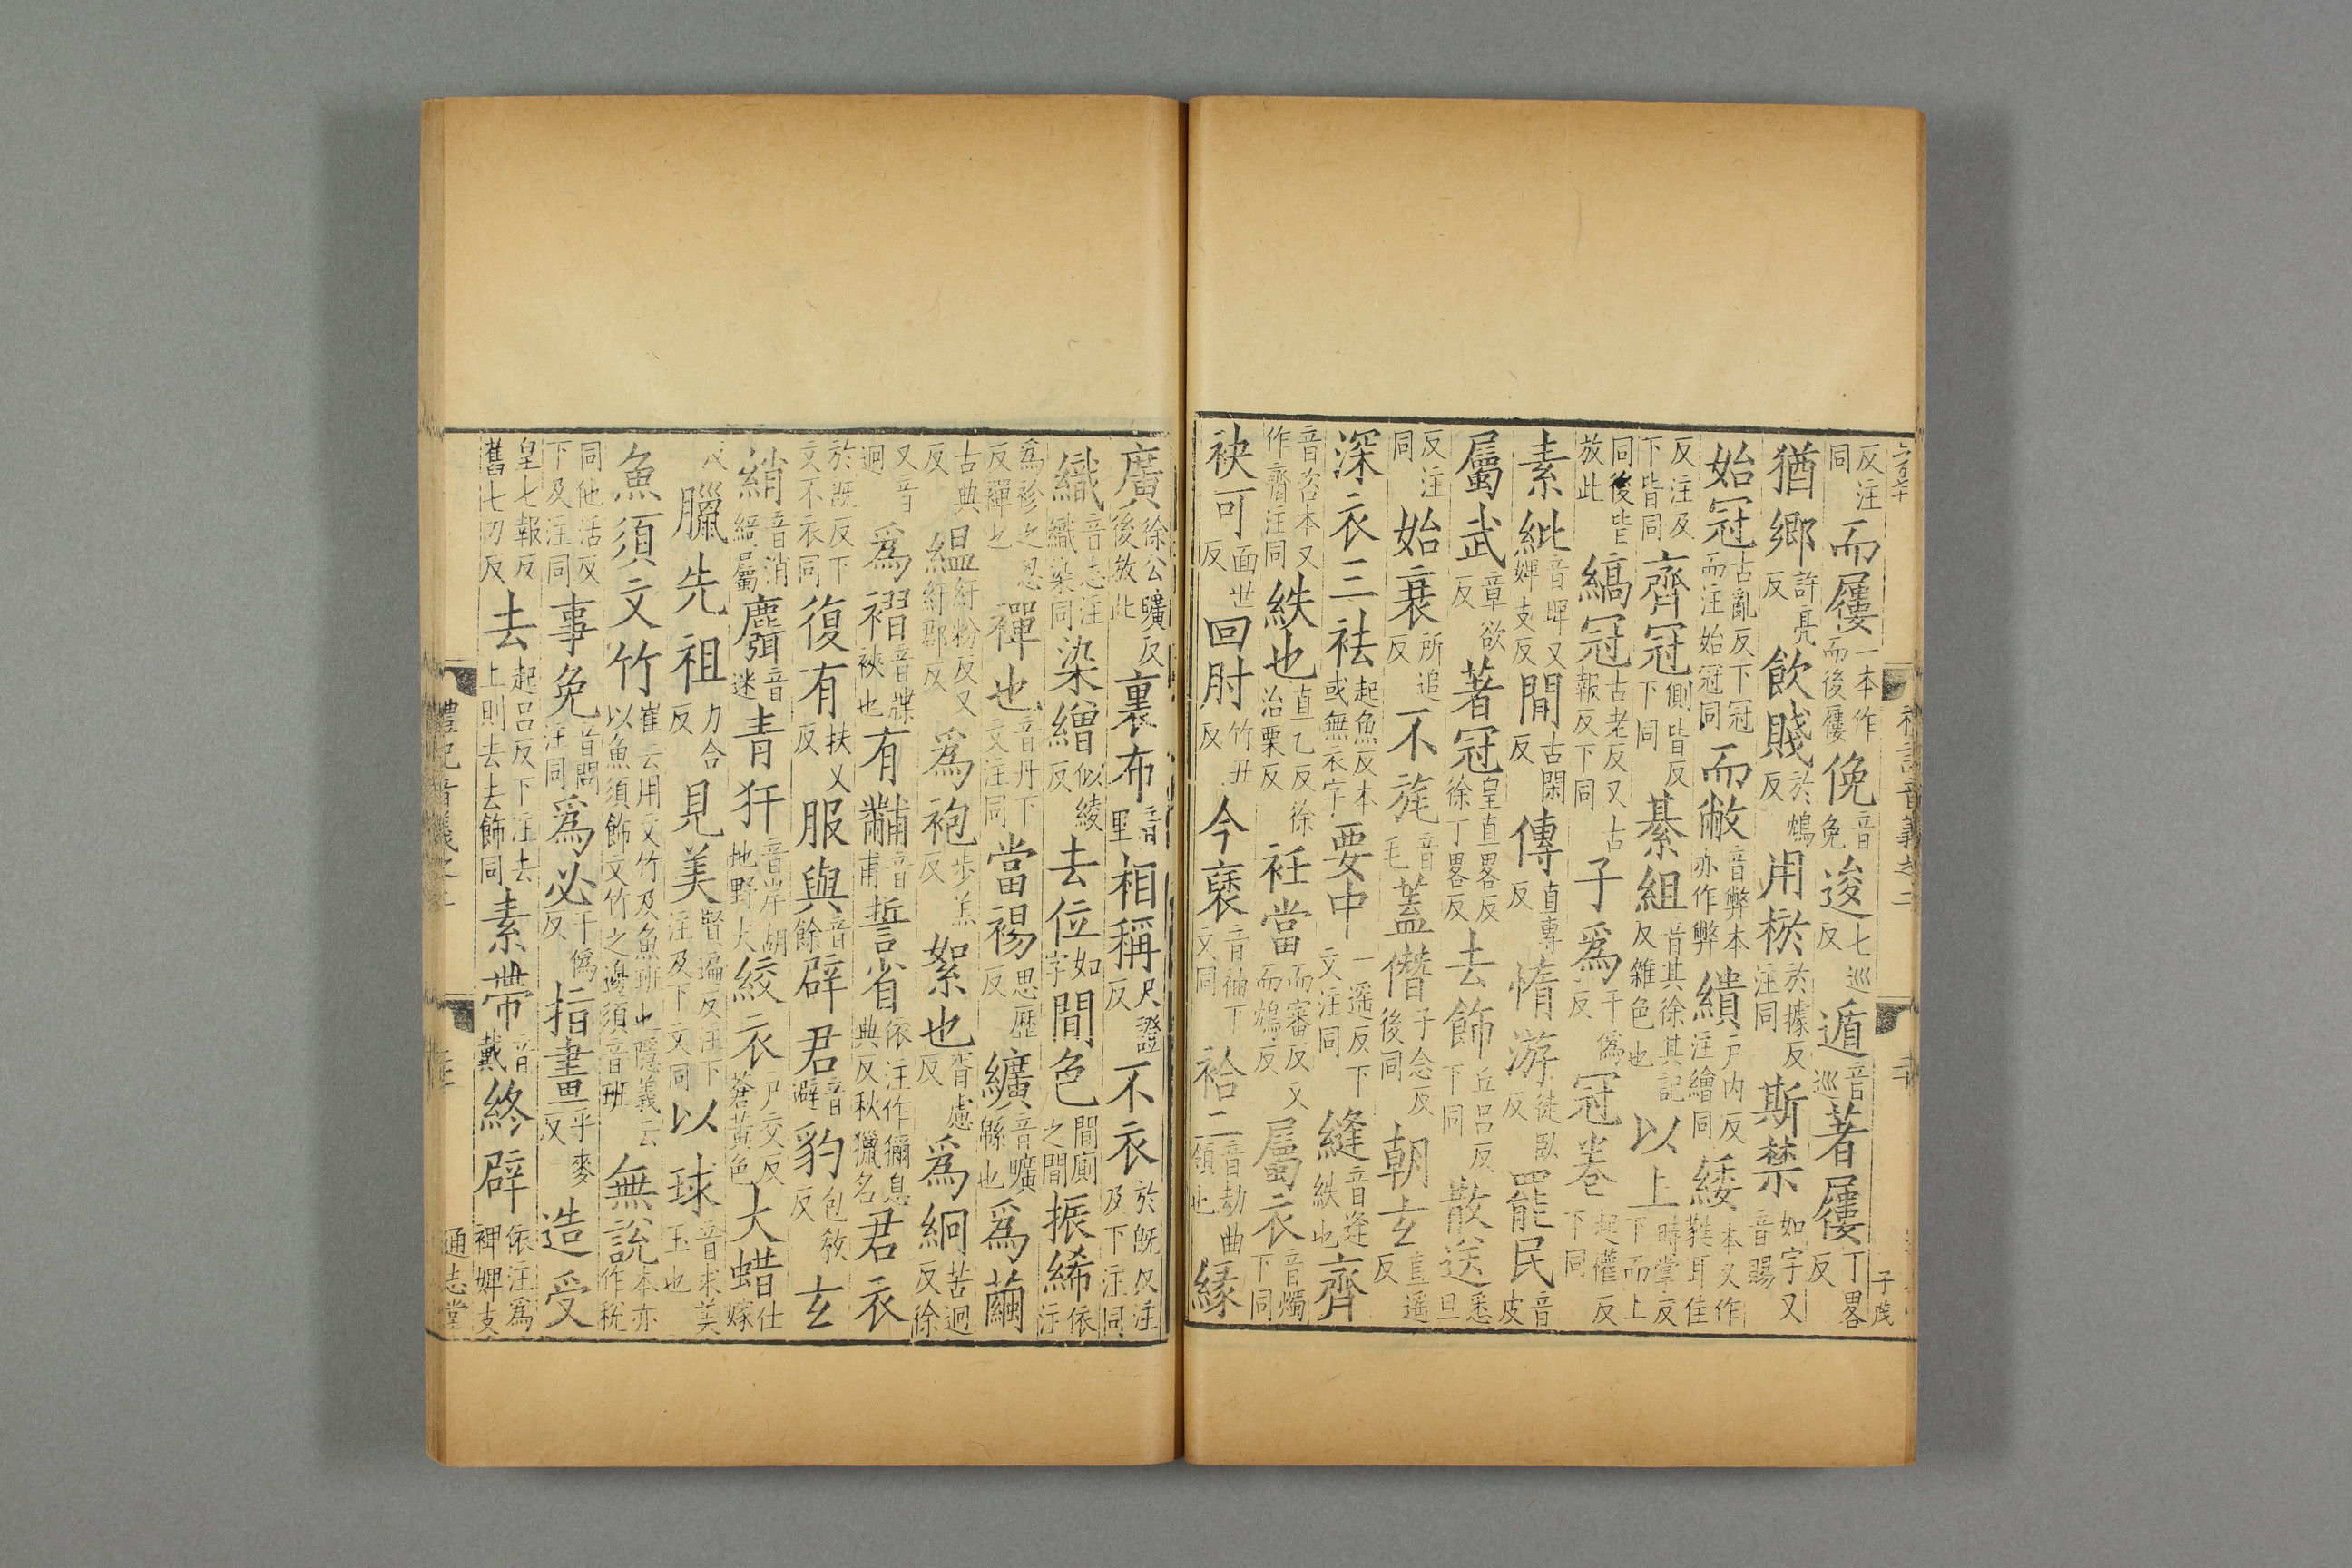 反注同而屨一本作而後屨俛音免逡七巡反遁音巡著屨丁畧反
猶鄉許亮反飲賤於鴆反用棜於據反注同斯禁如字又音賜
始冠古亂反下冠而注始冠同而敝音弊本亦作弊繢戶內反注繪同緌本又作蕤耳佳
反注及下皆同齊冠側皆反下同綦組音其徐其記反雜色也以上時掌反下而上
同後皆放此縞冠古老反又古報反下同子爲于僞反冠卷起權反下同
素紕音睥又婢支反間古閑反傳直專反惰游徒臥反罷民音皮
屬武章欲反著冠皇直畧反徐丁畧反去飾丘呂反下同散送悉旦
反注同始衰所追反不旄音毛蓋僭子念反後同朝玄直遥反
深衣三袪起魚反本或無衣字要中一遥反下文注同縫音逢紩也齊
音咨本又作齎注同紩也直乙反徐治栗反衽當而審反又而鴆反屬衣音燭下同
袂可面世反回肘竹丑反今褎音袖下文同袷二音劫曲領也緣
廣徐公曠反後放此裏布音里相稱尺證反不衣於旣反注及下注同
織音志注織染同染繒似綾反去位如字間色間廁之間振絺依注
爲袗之忍反襌也襌也音丹下文注同當裼思歷反纊音曠緜也爲繭
古典反緼紆粉反又紆郡反爲袍步羔反絮也胥慮反爲絅苦迥反徐
又音迥爲褶音牒袷也有黼音甫誓省依注作獮息典反秋獵名君衣
於旣反下文不衣同復有扶又反服與音餘辟君音避豹包教反玄
綃音消綺屬麛音迷青豻音岸胡地野犬絞衣戶交反蒼黃色大蜡仕嫁
反臘先祖力合反見美賢遍反注下注及下文同以球音求美玉也
魚須文竹崔云用文竹及魚班也隱義云以魚須飾文竹之邊須音班無說本亦作稅
同他活反下及注同事免音問注同爲必于僞反指畫乎麥反造受
皇七報反舊七刀反去起呂反下注去上則去去飾同素帶音戴終辟依注爲裨婢支
通志堂